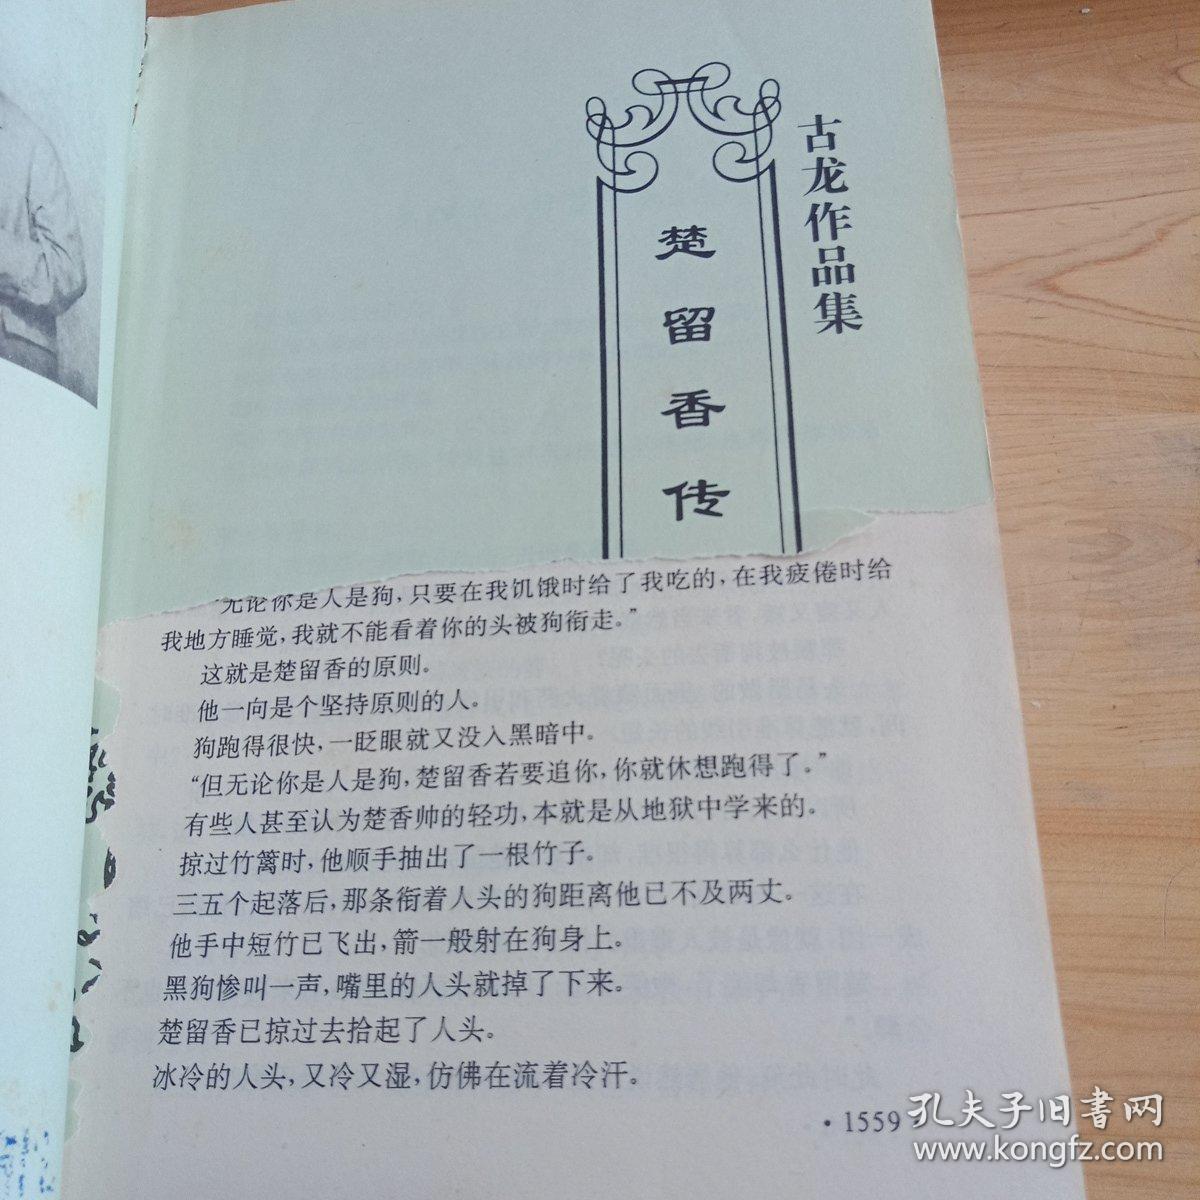 古龙作品集
楚留香传
“无论你是人是狗，只要在我饥饿时给了我吃的，在我疲倦时给
我地方睡觉，我就不能看着你的头被狗衔走。”
这就是楚留香的原则。
他一向是个坚持原则的人。
狗跑得很快，一眨眼就又没入黑暗中。
“但无论你是人是狗，楚留香若要追你，你就休想跑得了。”
有些人甚至认为楚香帅的轻功，本就是从地狱中学来的。
掠过竹篱时，他顺手抽出了一根竹子。
三五个起落后，那条衔着人头的狗距离他已不及两丈。
他手中短竹已飞出，箭一般射在狗身上。
黑狗惨叫一声，嘴里的人头就掉了下来。
楚留香已掠过去拾起了人头。
冰冷的人头，又冷又湿，仿佛在流着冷汗。
·1559
孔夫子旧书网
www.kongfz.com